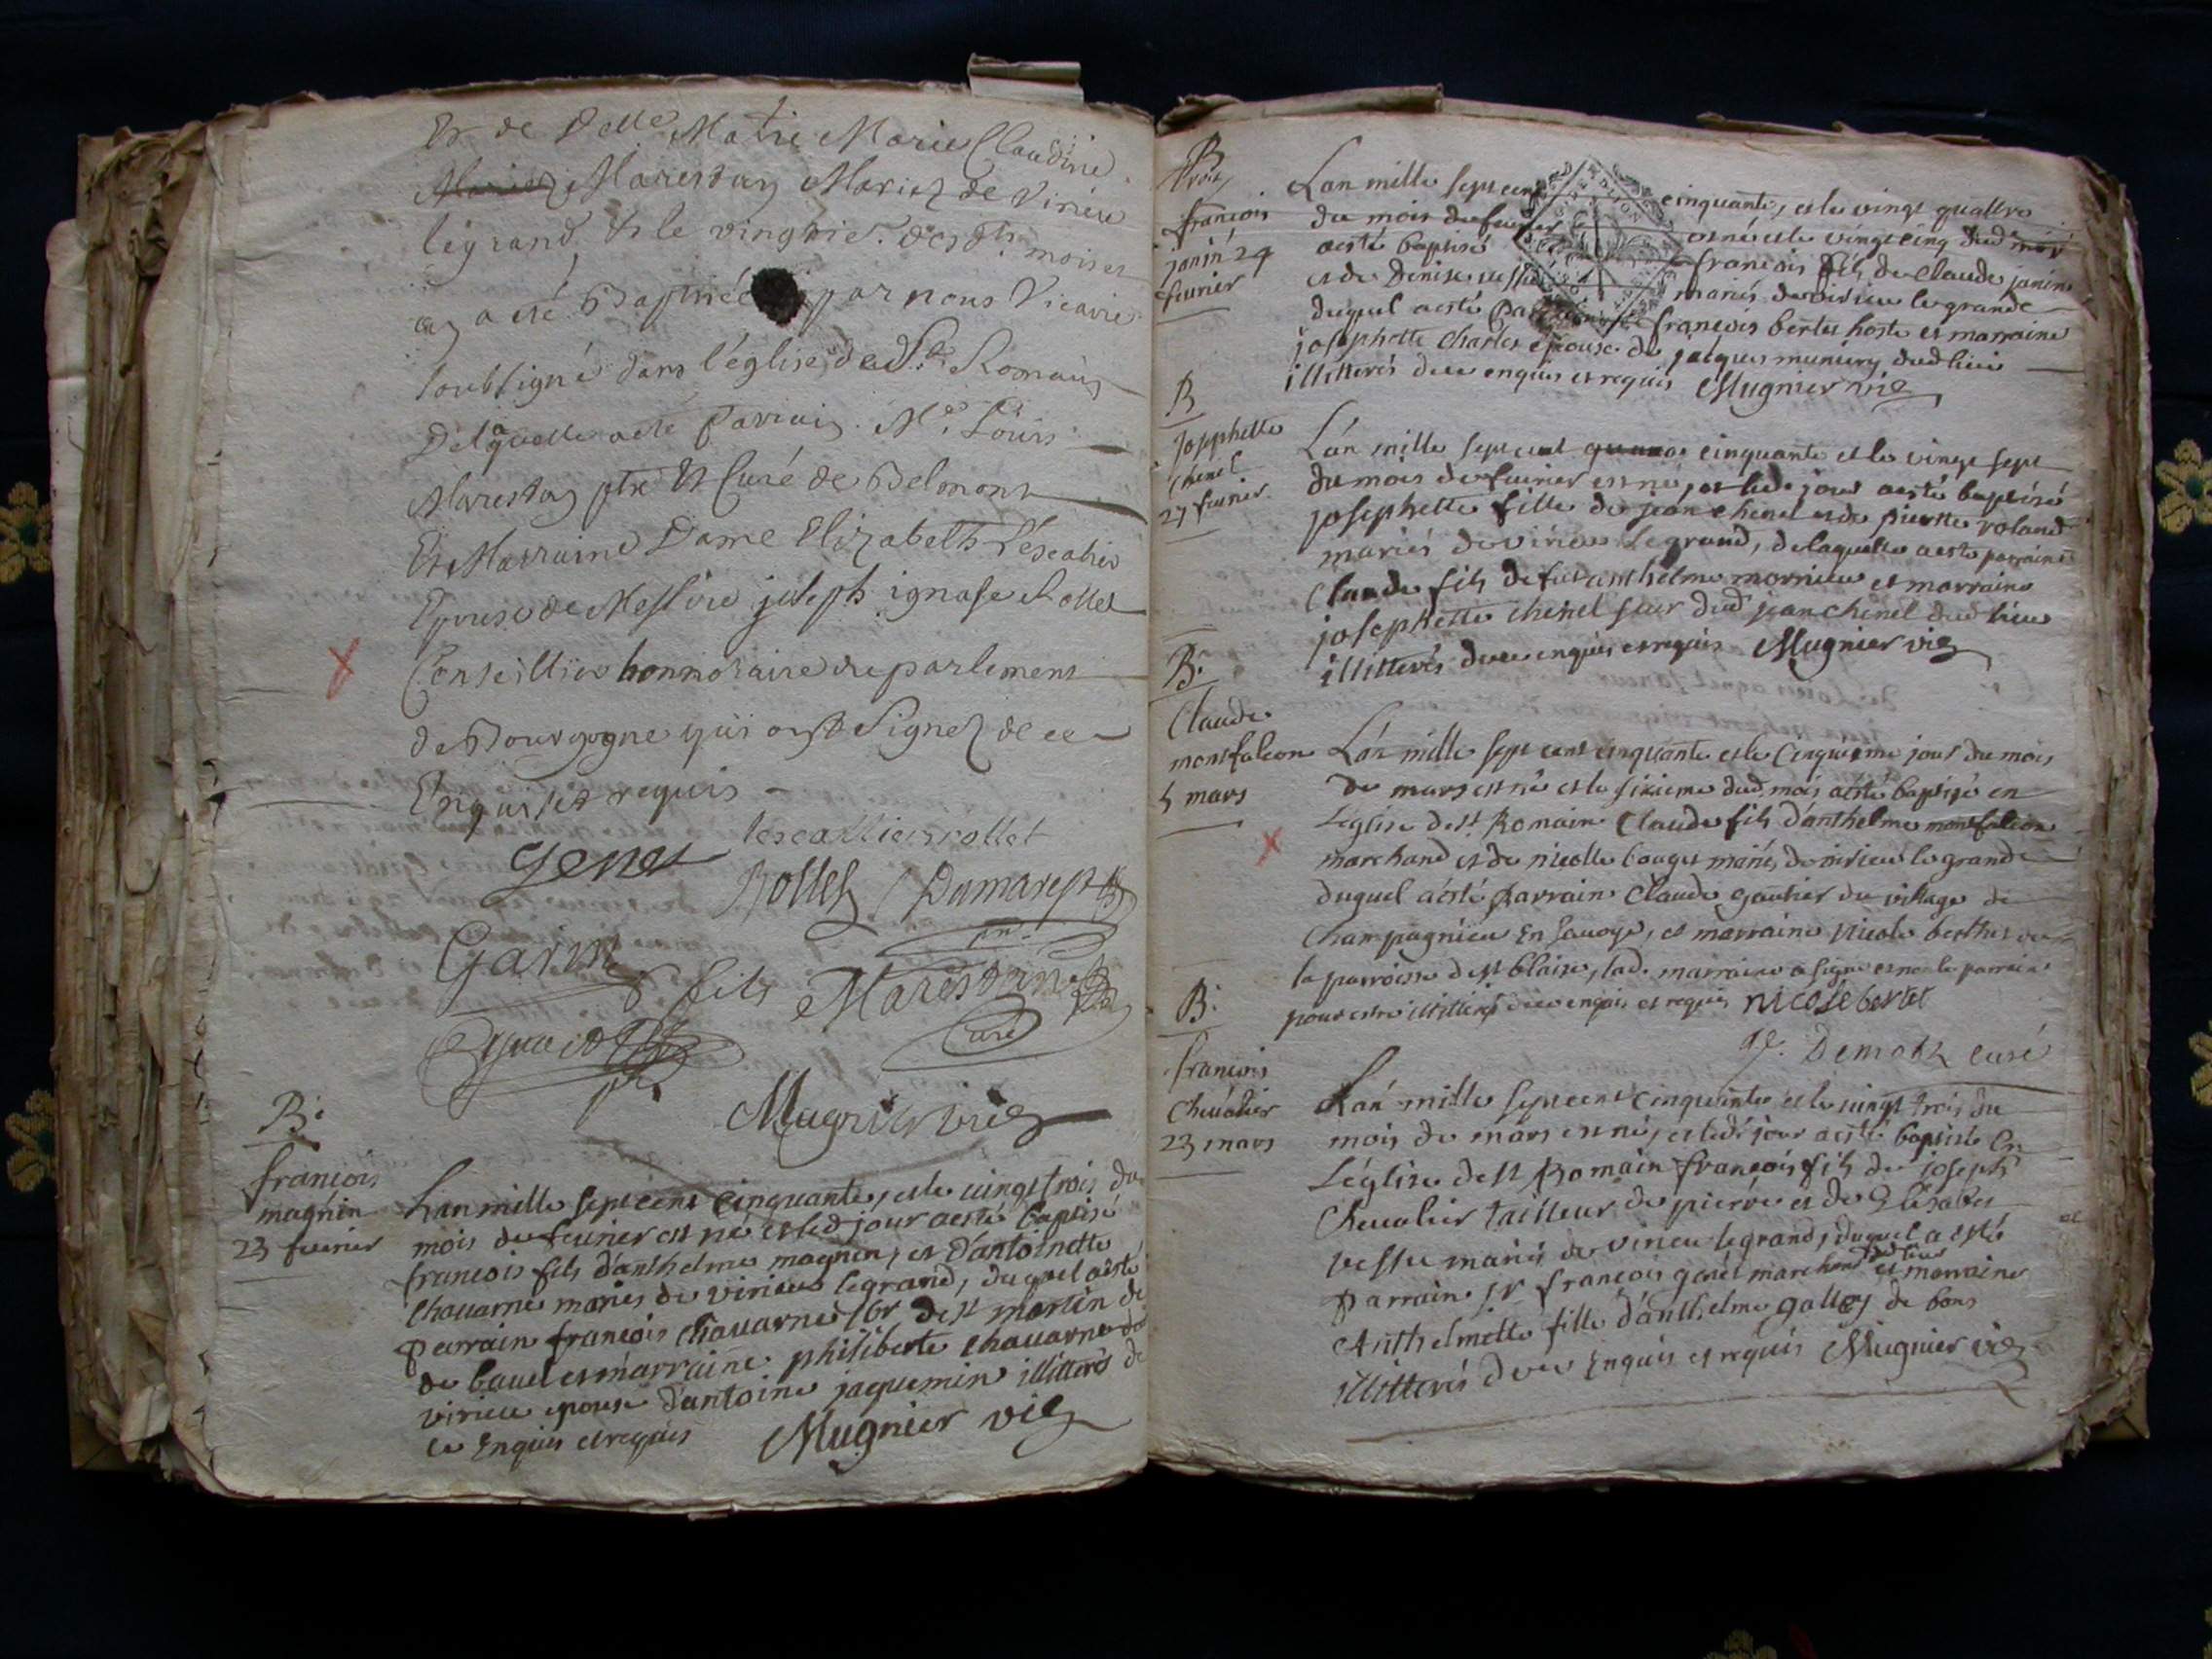 Et de Delle Marie Claudine
Marestan Mariez de Virieu
legrand, & le vingtie. desdts mois et
an a eté Baptisée par nous Vicaire
soubsigné dans l'église de St. Romain
De laquelle a eté Parrain Me. Louis
Marestan ptre Et Curé de Belmont
Et Marraine Dame Elizabeth Lescalier
Epouse de Messire joseph ignase Rollet
Conseillier honnoraire au parlement
de Bourgogne qui ont Signez de ce
Enquis et requis
lescallier rollet
genet
Rollet Dumarest
Garin
fils Marestan
Curé
Mugnier vic
B.
francois
magnin
23 feurier
Lan mille sept cent cinquante, et le uingt trois du
mois de feurier est né et led jour aesté baptisé
francois fils d'anthelme magnin, et d'antoinette
Chauarne mariés de virieu legrand, duquel aesté
parrain francois chauarne de st martin de
de bauel et marraine philiberte chauarne de
virieu epouse d'antoine jaquemin illitterés de
ce Enquis et requis Mugnier vic
B
francois
janin 24
feurier
Lan mille sept cent cinquante, et le vingt quattre
du mois de feurier est né et le vingt cinq dud mois
aesté baptisé francois fils de Claude janin
et de Denise mariés de virieu le grand
duquel aesté parrain francois bertet hoste et marraine
josephette Charles epouse de jacques muniery dud lieu
illitterés de ce enquis et requis Mugnier vic
B
Josephette
Chenel
27 feurier
Lán mille sept cent cinquante et le vingt sept
du mois de feurier est né, et led jour aesté baptisé
josephette fille de jean chenel et de pierrette roland
mariés de virieu legrand, de laquelle aesté parrain
Claude fils de feu anthelme mornieu et marraine
josephette chenel sœur dud jean chenel dud lieu
illitterés de ce enquis et requis Mugnier vic
B.
Claude
montfalcon
5 mars
Lán mille sept cent cinquante et le Cinquieme jour du mois
de mars est né et le sixieme dud mois aesté baptisé en
Léglise de st Romain Claude fils d'anthelme montfalcon
marchand et de nicolle bouget mariés de virieu le grand
duquel aésté parrain Claude gautier du village de
Champagnieu En Sauoye, et marraine Nicole berthet de
la parroisse de st blaise, lad. marraine a signé et non le parrain
pour estre illitteré de ce enquis et requis nicole bertet
Demotz curé
B.
francois
Cheualier
23 mars
Lán mille sept cent cinquante et le uingt trois du
mois de mars est né, et ledt jour aesté baptisé En
Léglise de st Romain francois fils de joseph
Cheualier tailleur de pierre et de Elisabet
vessu mariés de virieu legrand, duquel a esté
parrain sr françois genet marchand dud lieu et marraine
Anthelmette fille d'anthelme galley de bons
illitterés de ce Enquis et requis Mugnier vic